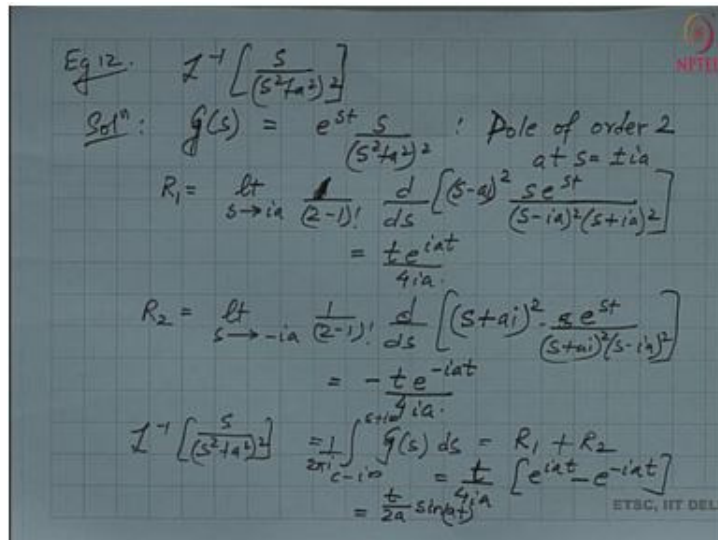 Eg 12. L⁻¹[s/(s²+a²)²]
NPTEL
Solⁿ: G(s) = e^{st} s/(s²+a²)² : Pole of order 2
at s = ±ia
R₁ = lt_{s→ia} 1/(2-1)! d/ds [(s-ai)² s e^{st}/((s-ia)²(s+ia)²)]
= t e^{iat}/4ia.
R₂ = lt_{s→-ia} 1/(2-1)! d/ds [(s+ai)² · s e^{st}/((s+ai)²(s-ia)²)]
= - t e^{-iat}/4ia.
L⁻¹[s/(s²+a²)²] = 1/2πi ∫_{c-i∞}^{s+i∞} G(s) ds = R₁ + R₂
= t/4ia [e^{iat} - e^{-iat}]
= t/2a sin(at)
ETSC, IIT DEL